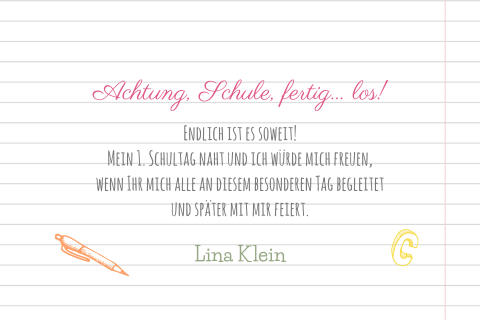 Achtung, Schule, fertig... los!
Endlich ist es soweit!
Mein 1. Schultag naht und ich würde mich freuen,
wenn Ihr mich alle an diesem besonderen Tag begleitet
und später mit mir feiert.
Lina Klein